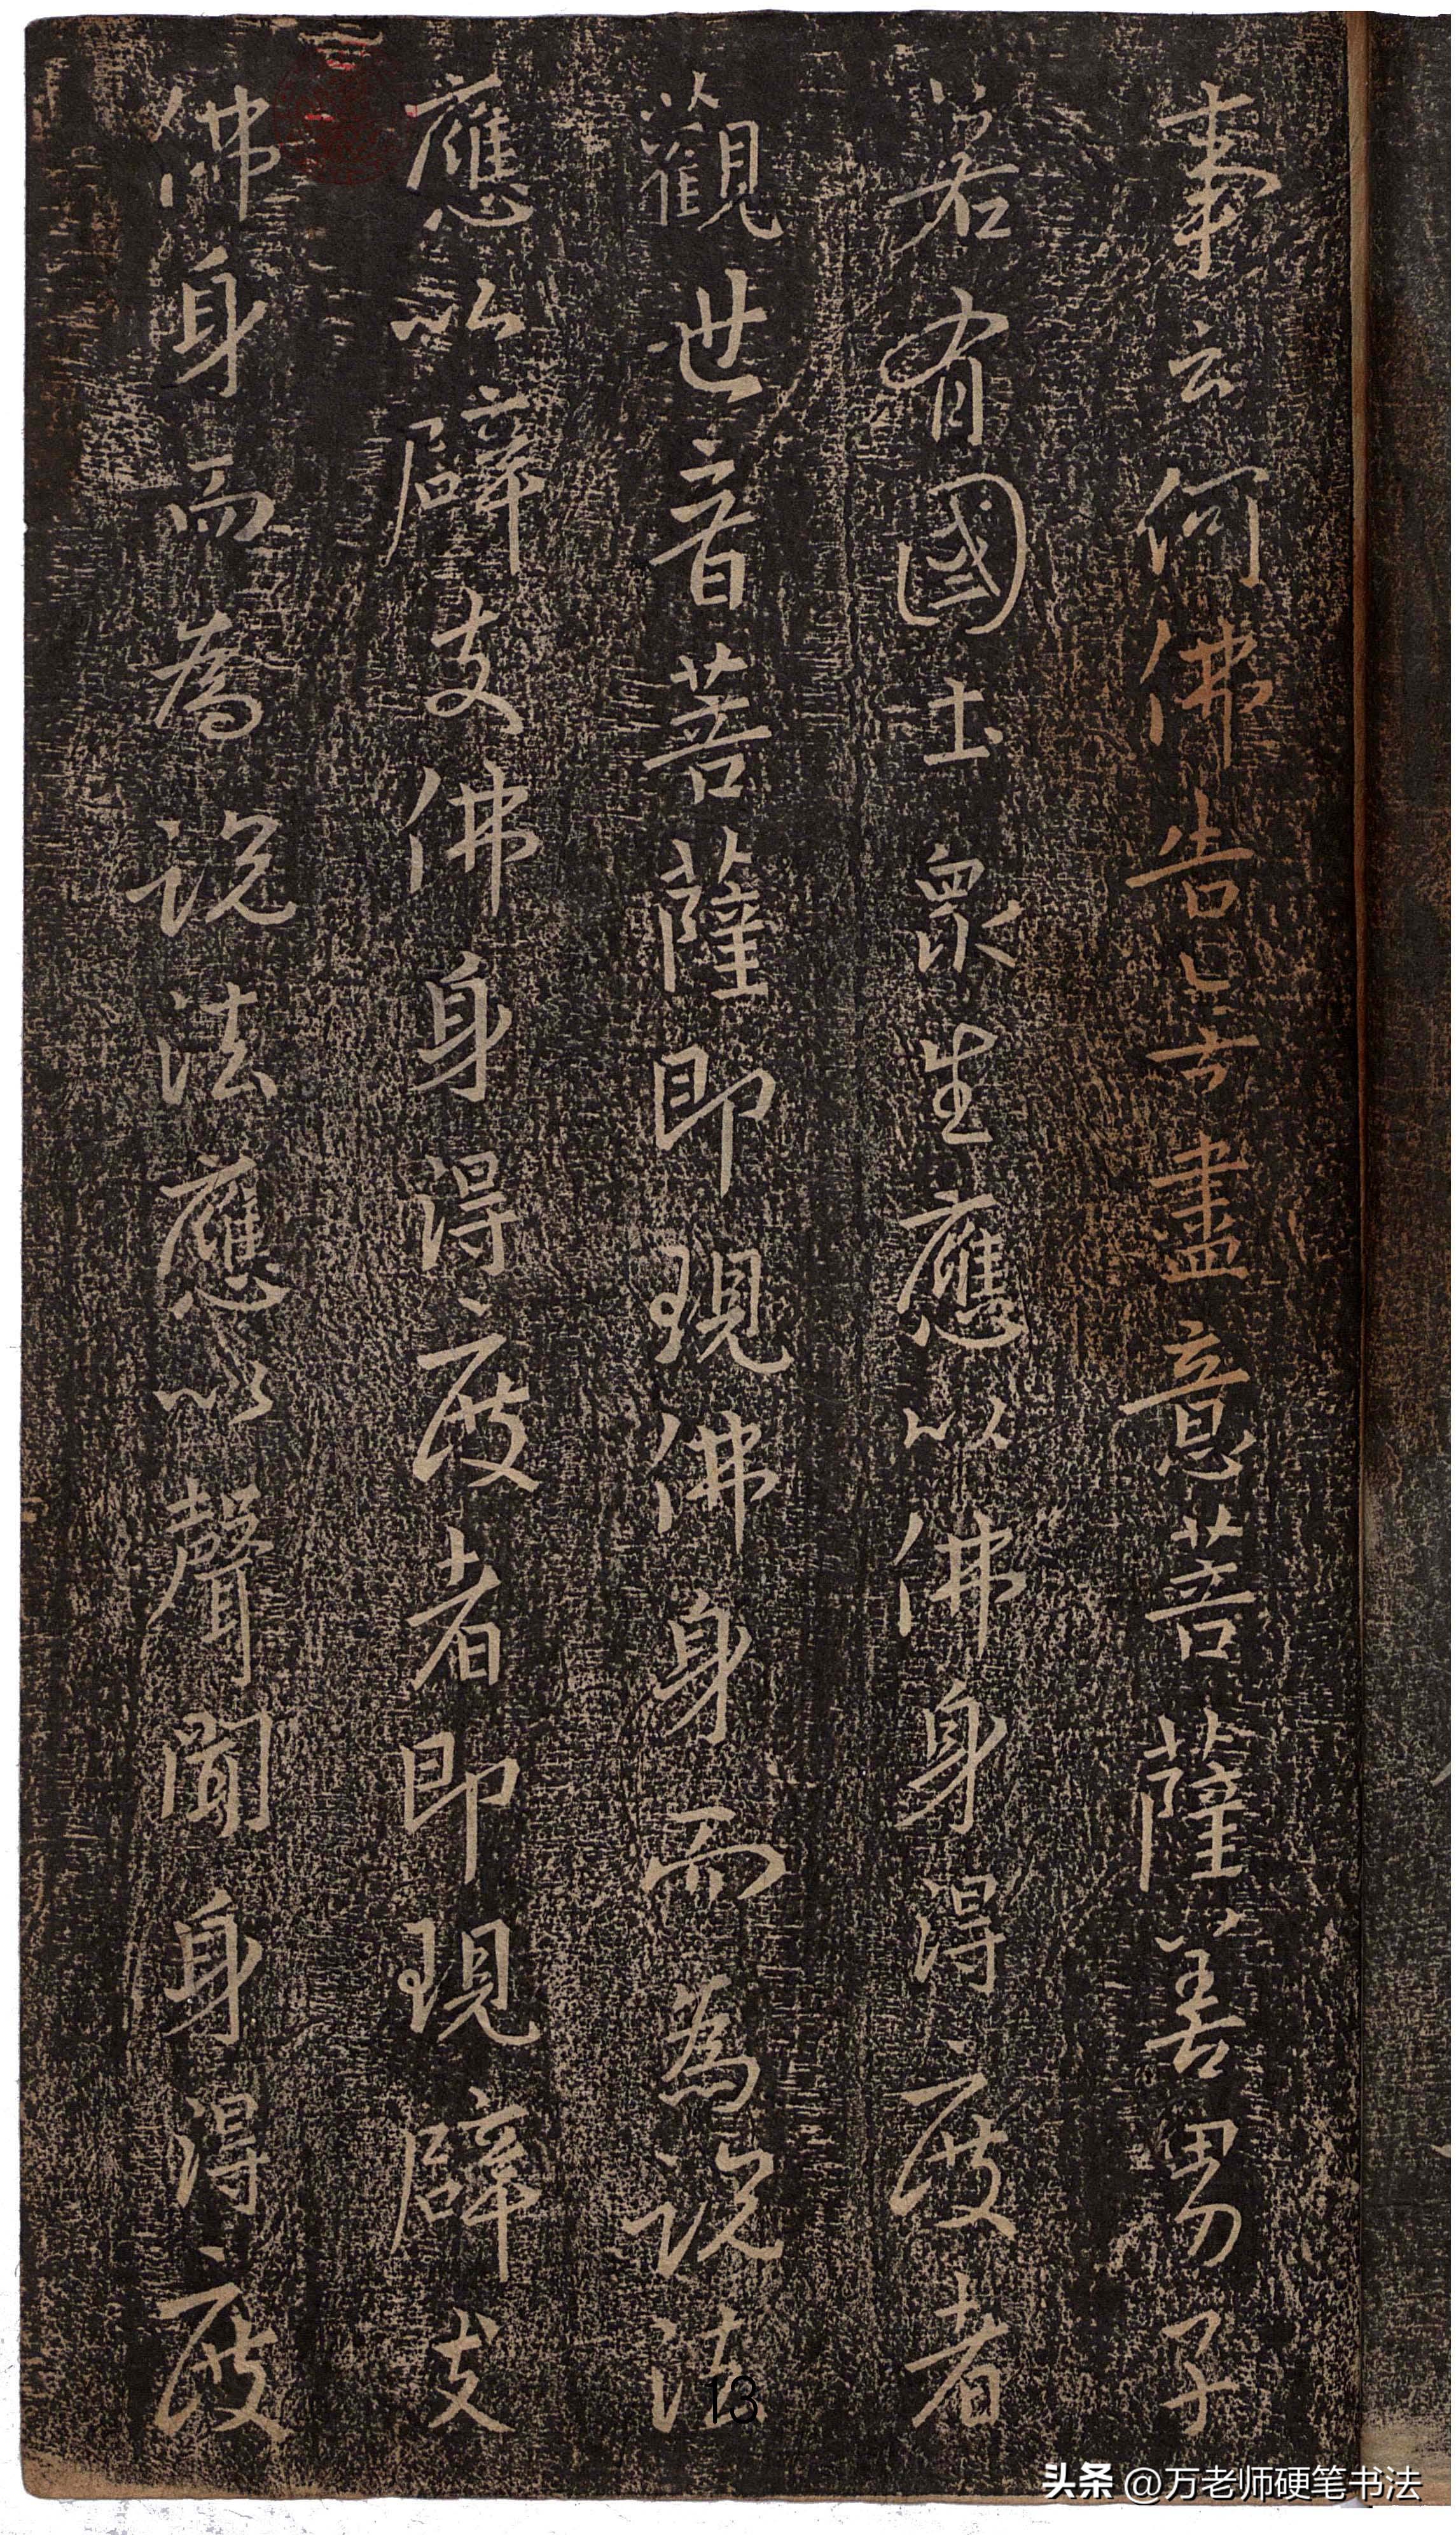 事云何佛告无盡意菩薩善男子
若有國土衆生應以佛身得度者
觀世音菩薩即現佛身而為説法
應以辟支佛身得度者即現辟支
佛身而為説法應以聲聞身得度
13
头条 @万老师硬笔书法